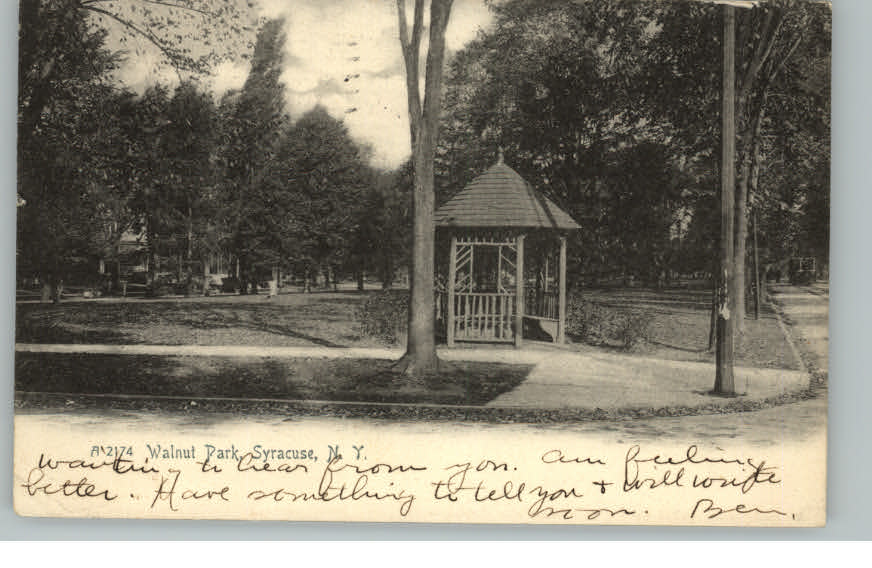 A 2174 Walnut Park, Syracuse, N. Y.
wanting to hear from you. am feeling
better. Have something to tell you + will write
soon. Ben.